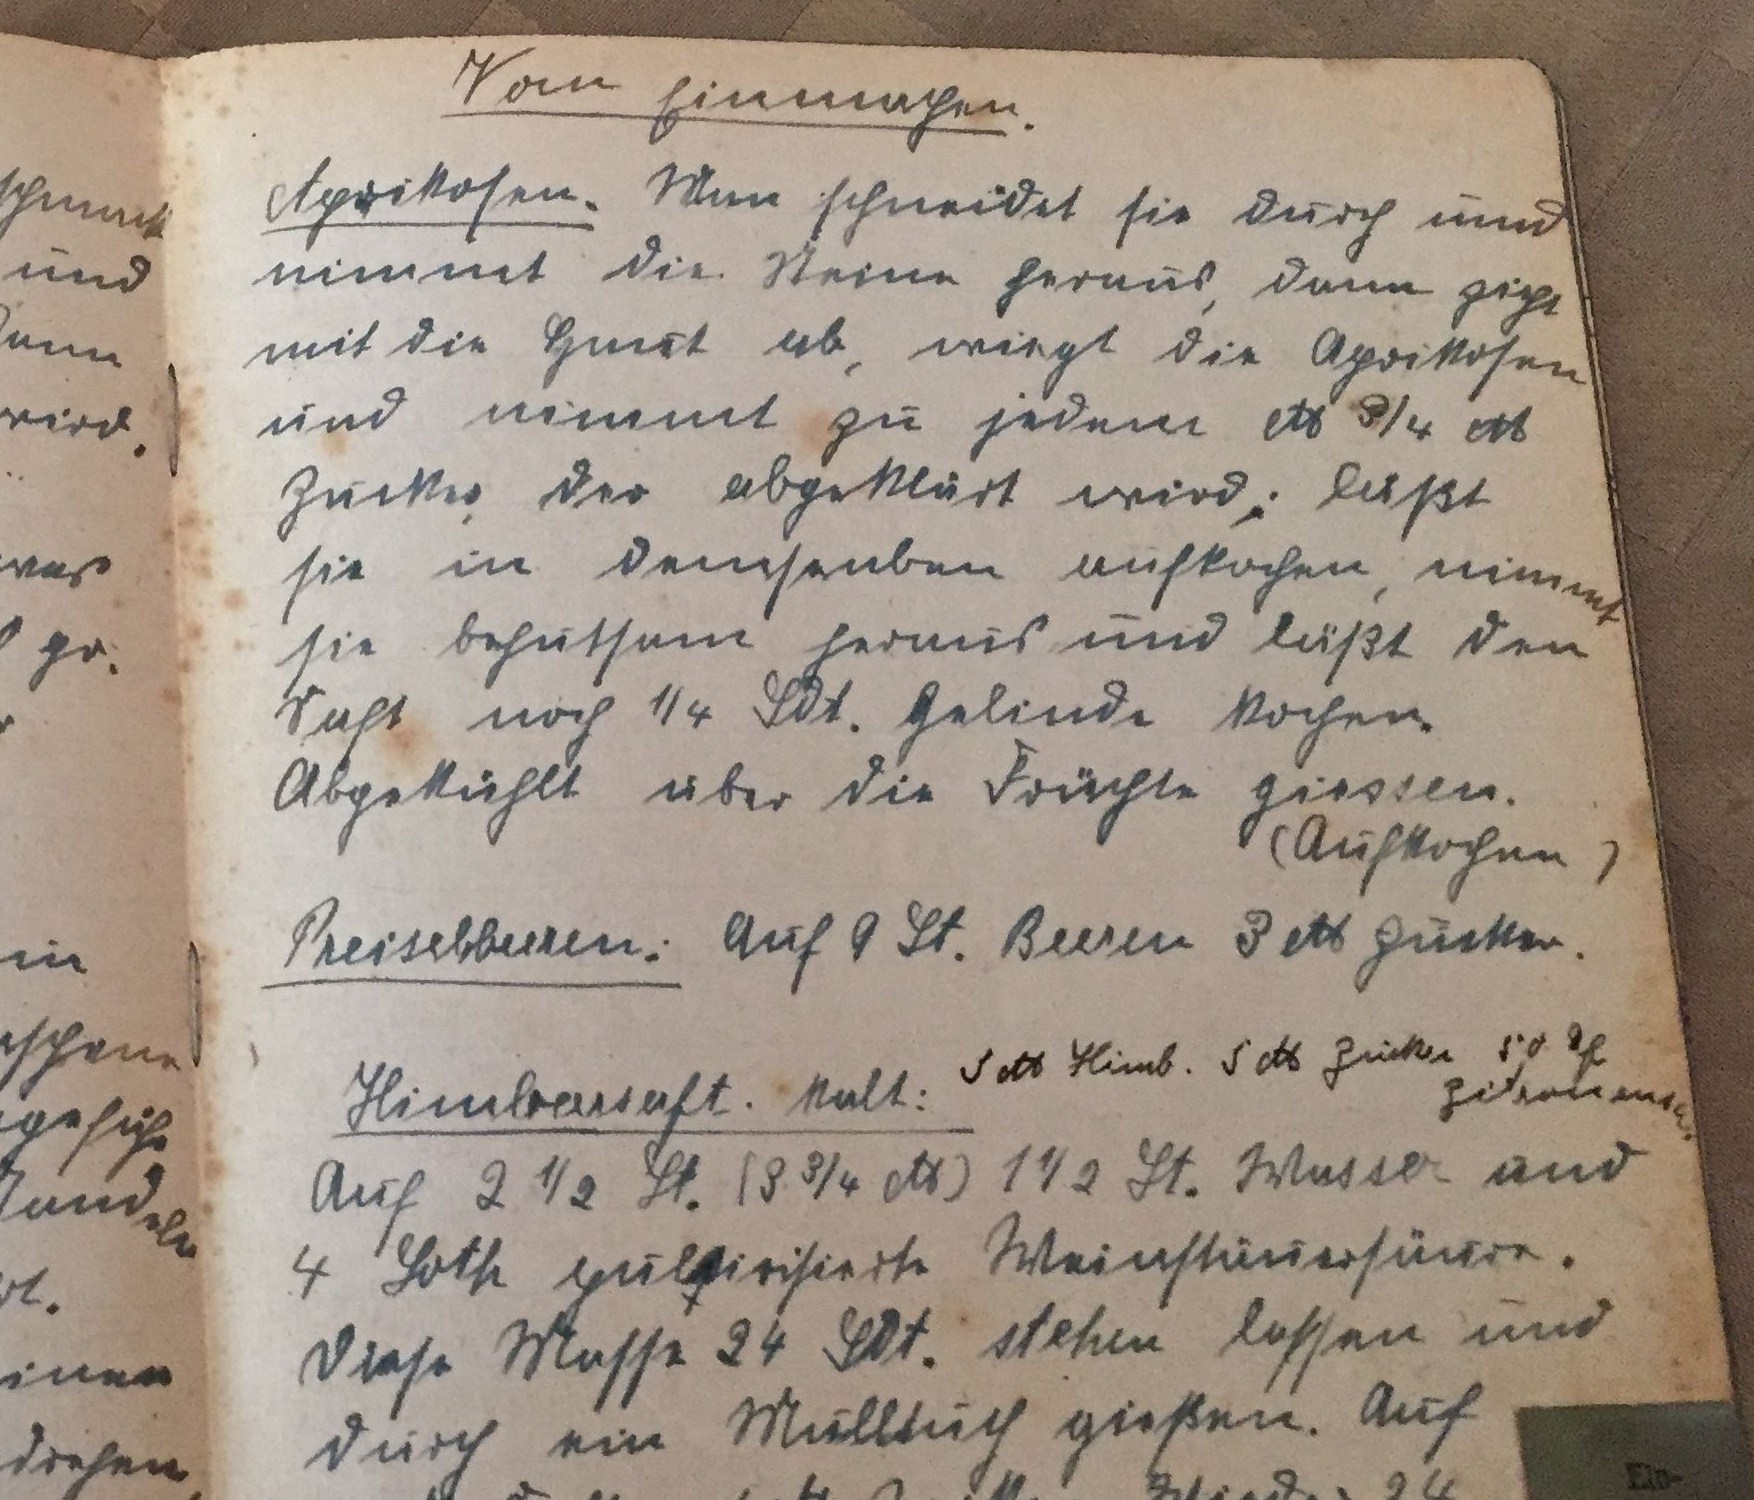 schmack
und
dann
wird.
was
gr.
in
gefüh
Mandeln
inen
drehen
Vom Einmachen.
Aprikosen. Man schneidet sie durch und
nimmt die Steine heraus, dann zieht
mit die Haut ab, wiegt die Aprikosen
und nimmt zu jedem ℔ 3/4 ℔
Zucker, der abgeklärt wird; läßt
sie in demselben aufkochen, nimmt
sie behutsam heraus und läßt den
Saft noch 1/4 Sdt. gelinde kochen.
Abgekühlt über die Früchte giessen.
(Aufkochen)
Preiselbeeren: Auf 9 Lt. Beeren 3 ℔ Zucker.
5 ℔ Himb. 5 ℔ Zucker 50 gr
Zitronensr.
Himbeersaft. Kalt:
Auf 2 1/2 Lt. (3 3/4 ℔) 1 1/2 Lt. Wasser und
4 Loth pulverisierte Weinsteinsäure.
Diese Masse 24 Sdt. stehen lassen und
durch ein Mulltuch gießen. Auf
Wieder 24
Ein-